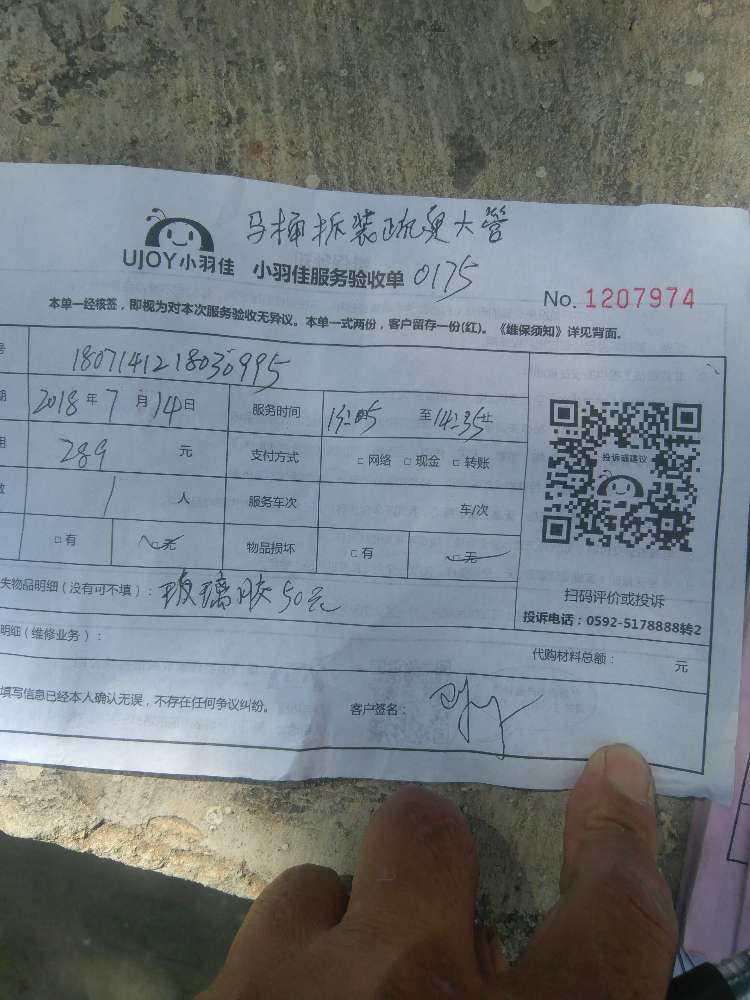 马桶拆装疏臭大管
UJOY小羽佳 小羽佳服务验收单 0175
No. 1207974
本单一经核签，即视为对本次服务验收无异议。本单一式两份，客户留存一份(红)。《维保须知》详见背面。
号 1807141218030995
期 2018 年 7 月 14 日 服务时间 13:05 至 14:35 止
用 289 元 支付方式 □ 网络 □ 现金 □ 转账
数 1 人 服务车次 车/次
□ 有 □ 无 物品损坏 □ 有 □ 无
投诉或建议
扫码评价或投诉
投诉电话：0592-5178888转2
失物品明细（没有可不填）：玻璃胶50元
明细（维修业务）： 代购材料总额： 元
填写信息已经本人确认无误，不存在任何争议纠纷。 客户签名：